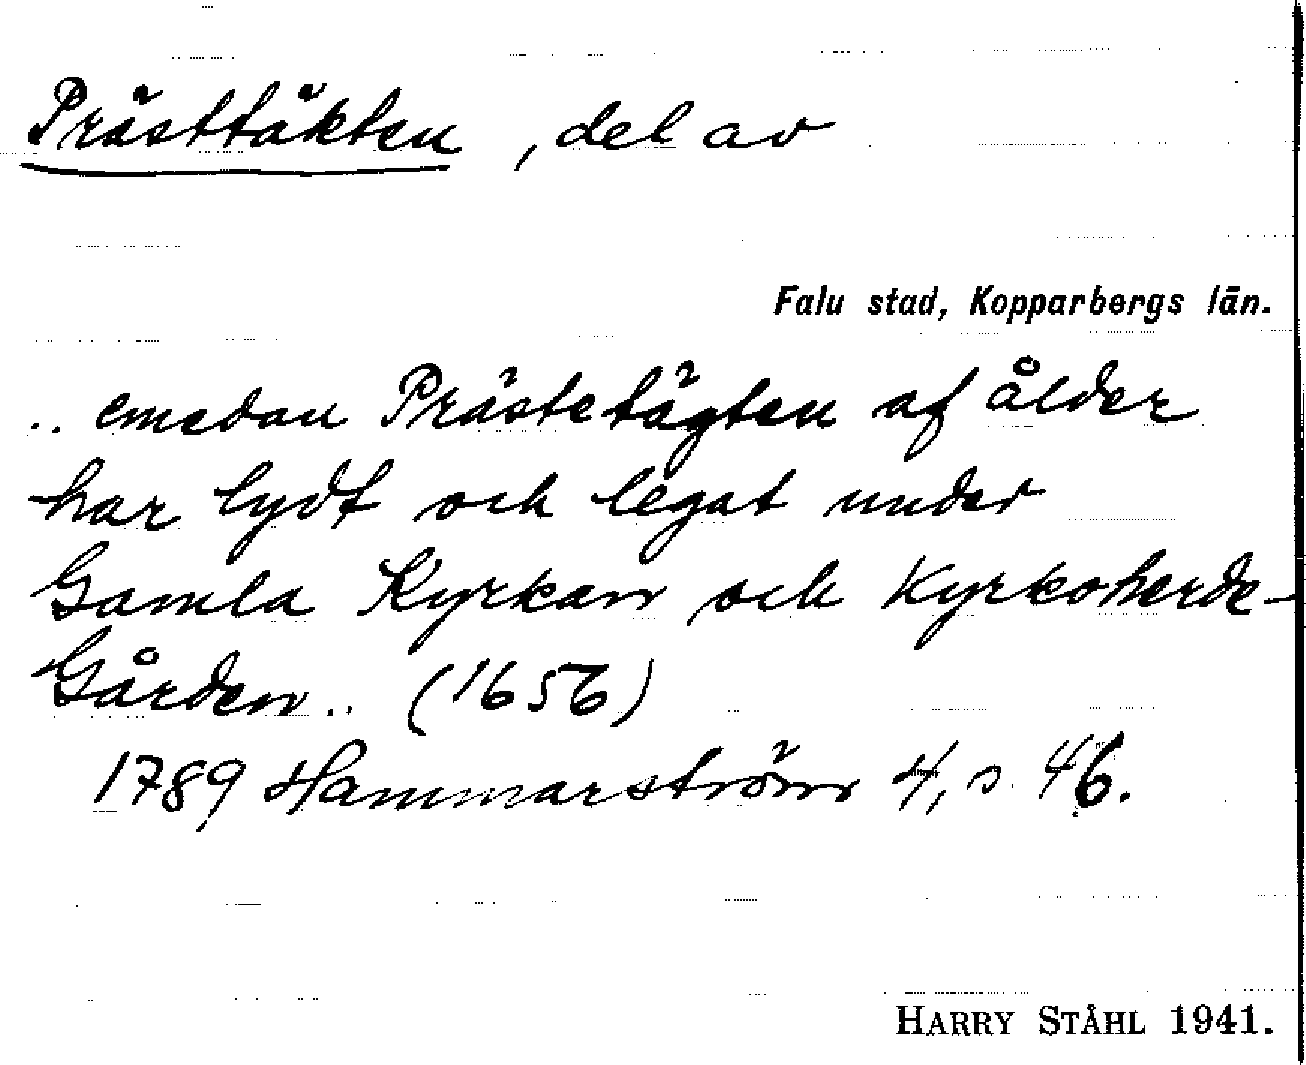 Prästtäkten, del av
Falu stad, Kopparbergs län.
.. emedan Prästetägten af ålder
har lydt och legat under
Gamla Kyrkan och Kyrkoherde-
Gården .. (1656)
1789 Hammarström 4, s. 46.
HARRY STÅHL 1941.